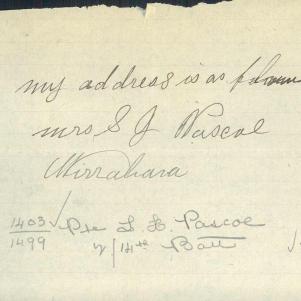 my address is as follows
Mrs S J Pascoe
Wirrabara
1403 Pte L H. Pascoe
1499 14th Batt